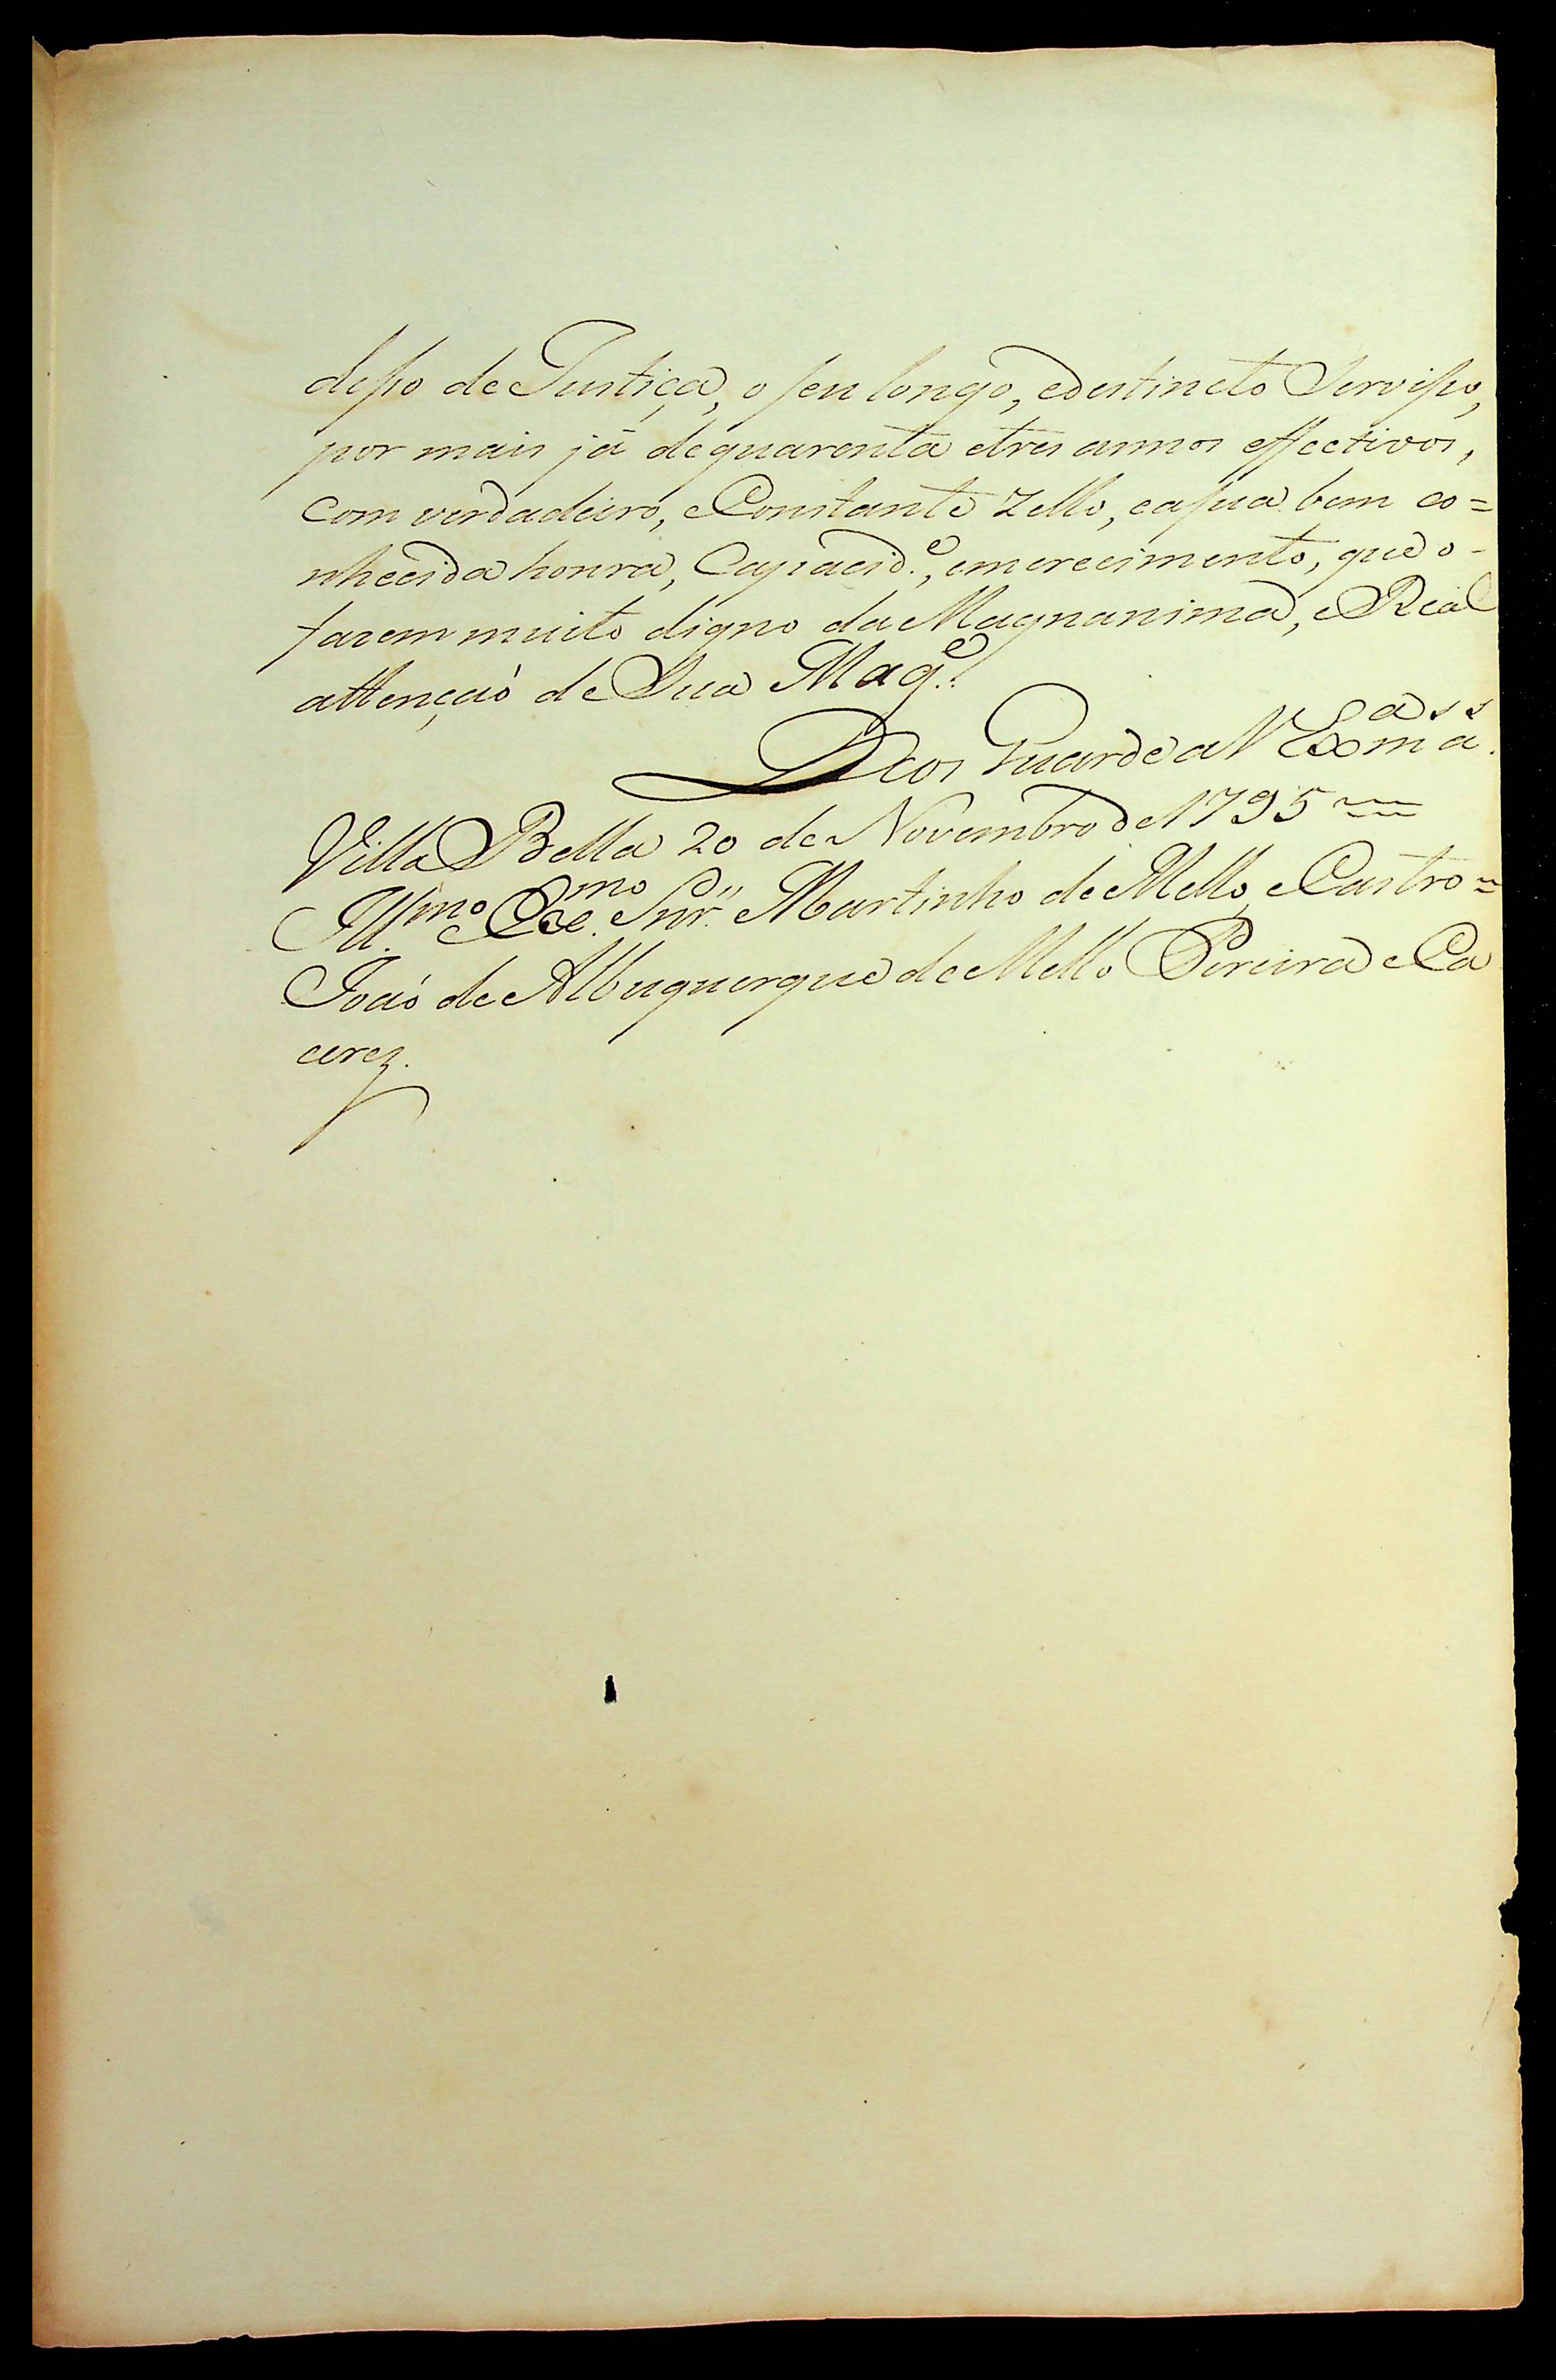 desso de Justiça, o seu longo, edestincto Servisso,
por mais já dequarenta etres annos effectivos,
com verdadeiro, eConstante Zello, easua bem co=
nhecida honra, Capacid.e, emerecimento, que o-
fazem muito digno da Magnanima, eReal
attençaõ de Sua Mag.e
Deos Guarde a V Ex.a m.a
Villa Bella 20 de Novembro de 1795
Ill.mo e Exe.mo Snr." Martinho de Mello, eCastro=
Joaõ de Albuquerque de Mello Pereira e Ca
cerez.